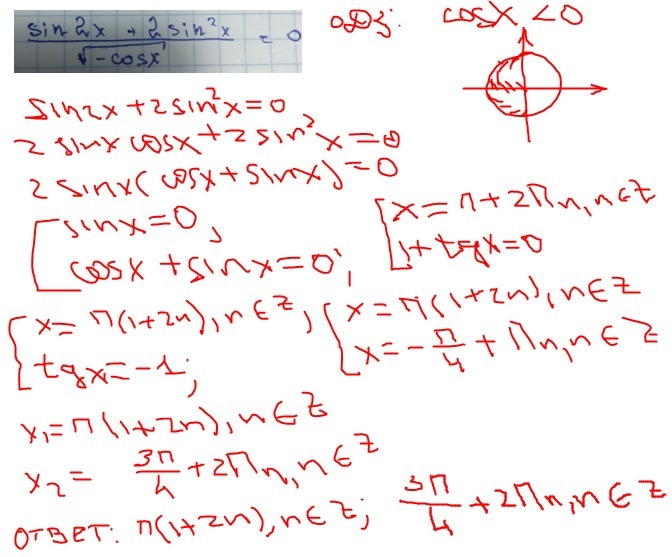 sin 2x + 2 sin²x
√-cosx
= 0
ОДЗ: cosx < 0
sin2x + 2 sin²x = 0
2 sinx cosx + 2 sin²x = 0
2 sinx(cosx + sinx) = 0
[ sinx = 0,
cosx + sinx = 0;
[ x = π + 2πn, n ∈ Z
1 + tgx = 0
[ x = π(1+2n), n ∈ Z;
tgx = -1;
[ x = π(1+2n), n ∈ Z
x = -π/4 + πn, n ∈ Z
x₁ = π(1+2n), n ∈ Z
x₂ = 3π/4 + 2πn, n ∈ Z
ОТВЕТ: π(1+2n), n ∈ Z; 3π/4 + 2πn, n ∈ Z